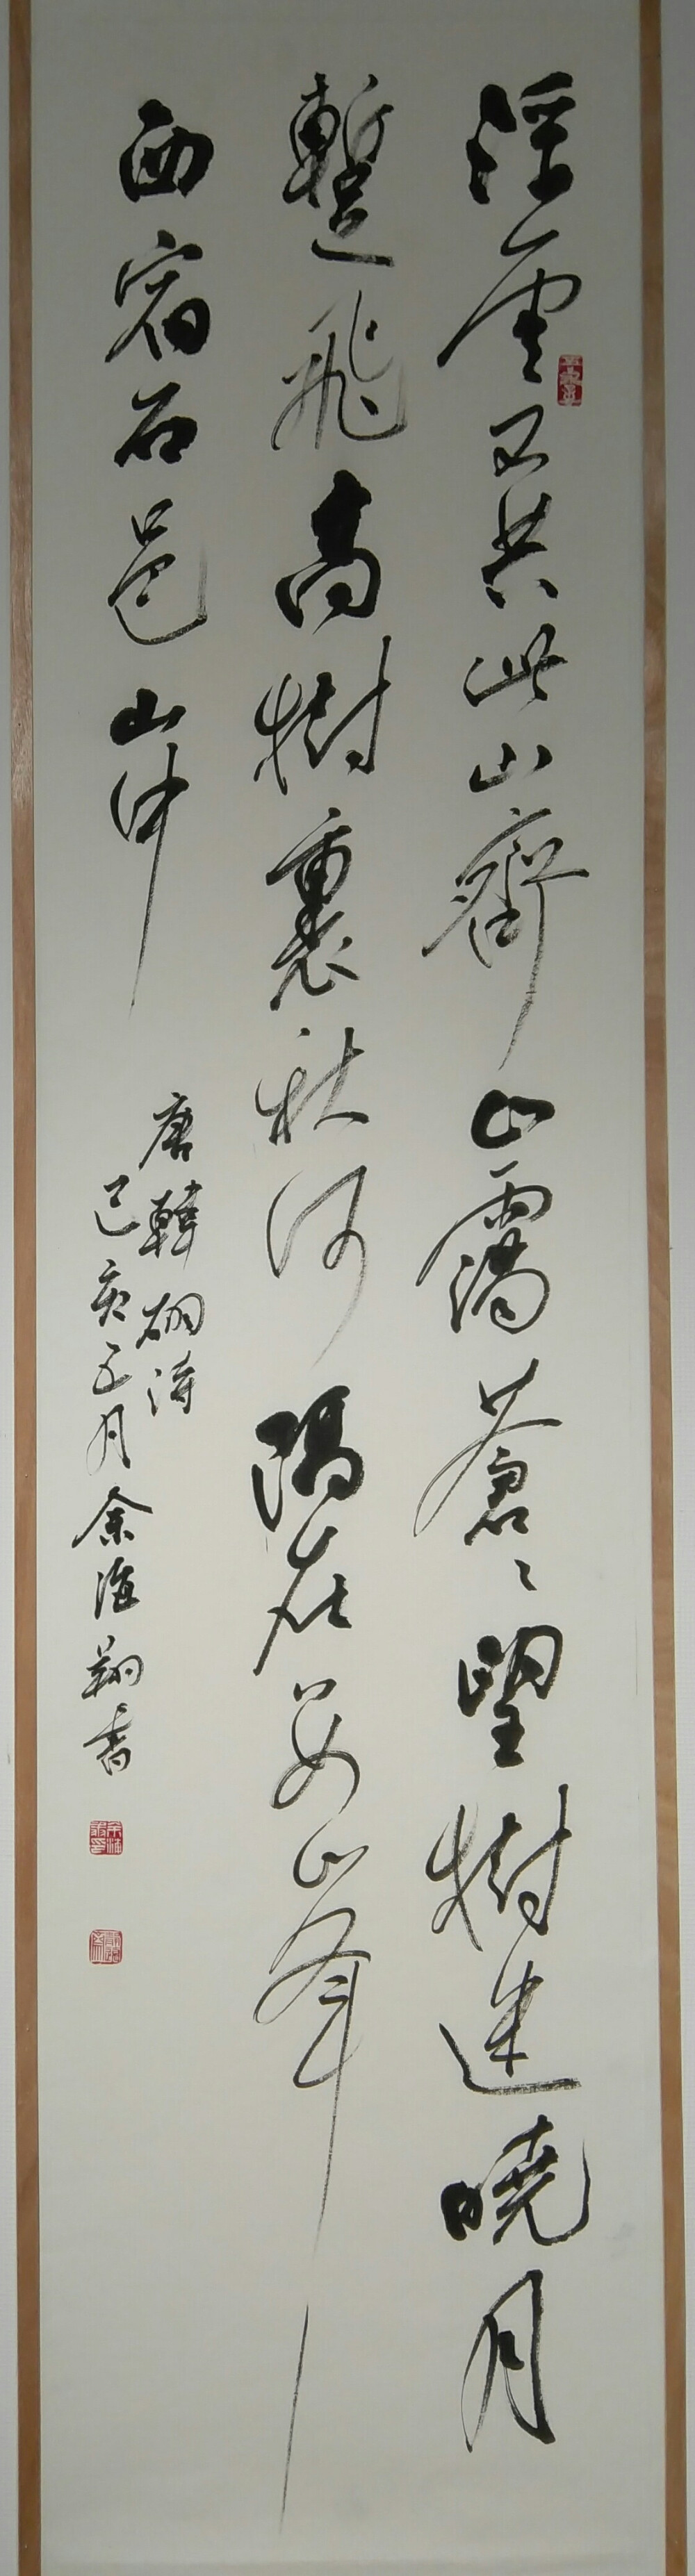 浮雲不共此山齊山靄蒼〻望樹迷曉月
蹔飛高樹裏秋河隔在數峯
西宿石邑山中
唐韓翃詩
己亥正月余海翔書